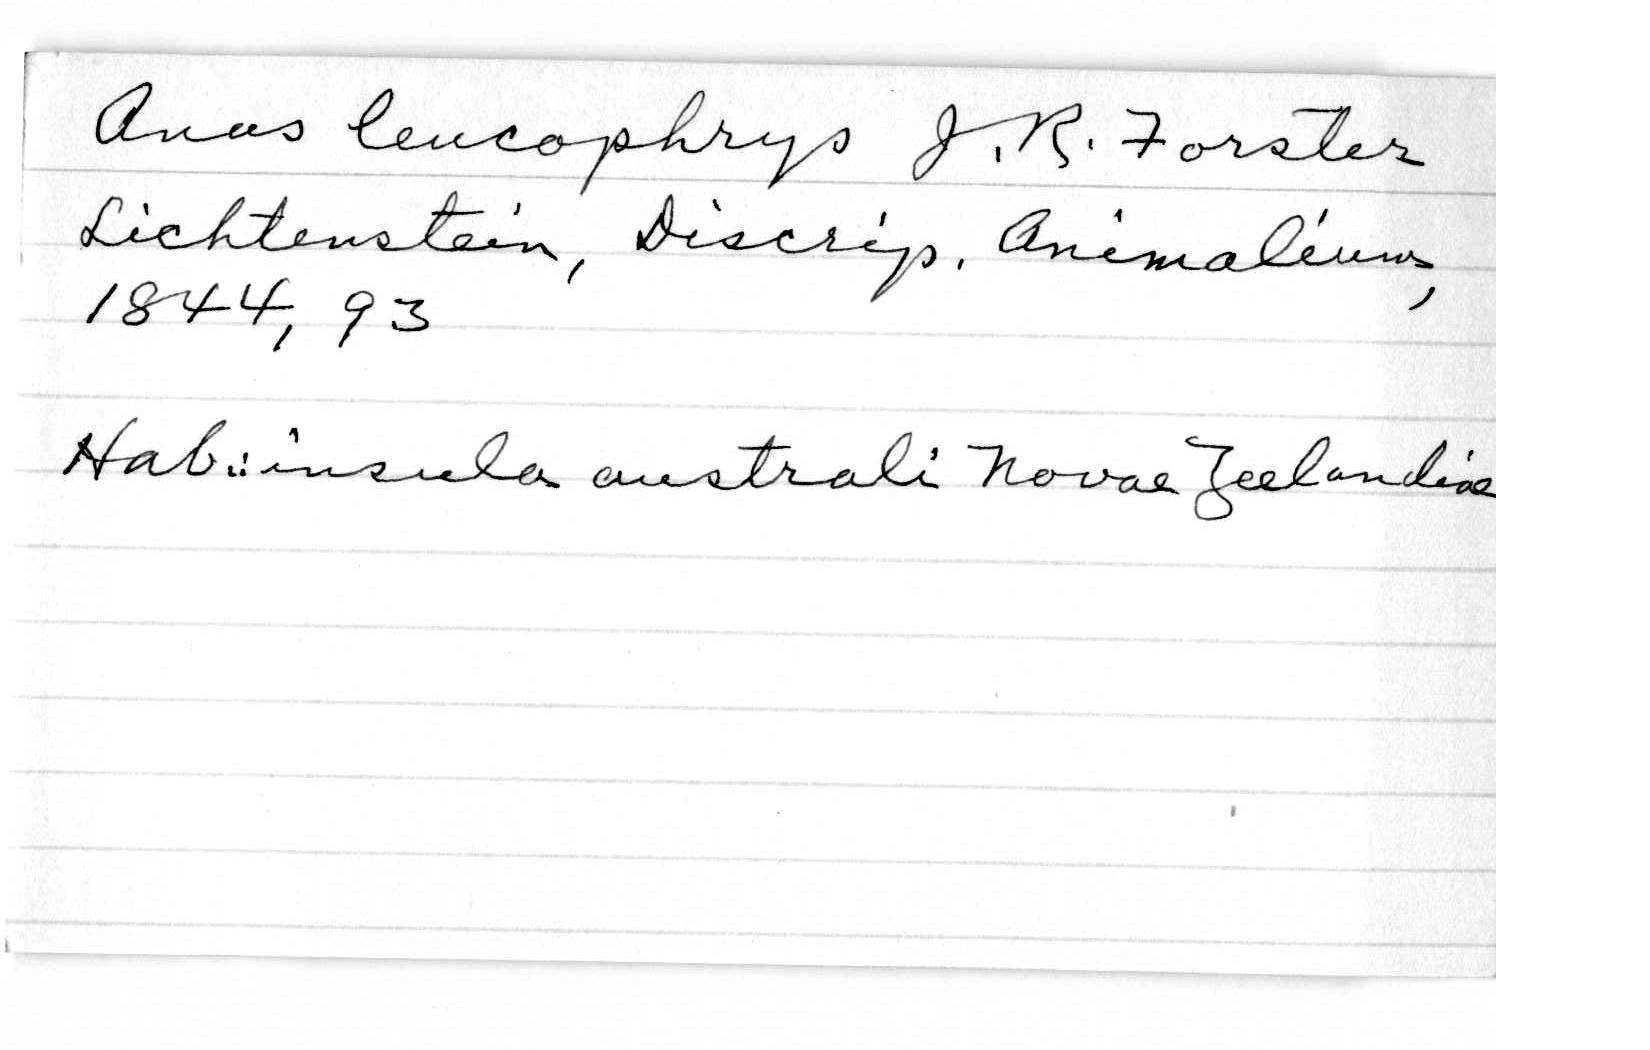 Anas leucophrys J. R. Forster
Lichtenstein, Discrip. Animalium,
1844, 93
Hab.: insula australi Novae Zeelandiae